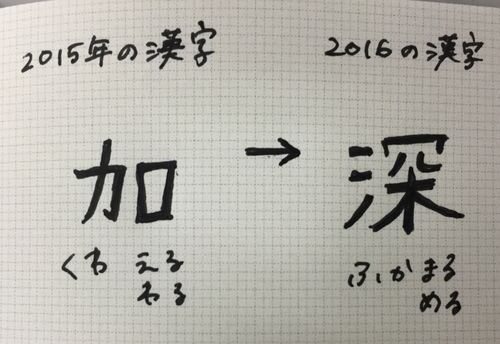 2015年の漢字
2016の漢字
加 → 深
くわえる
わる
ふかまる
める